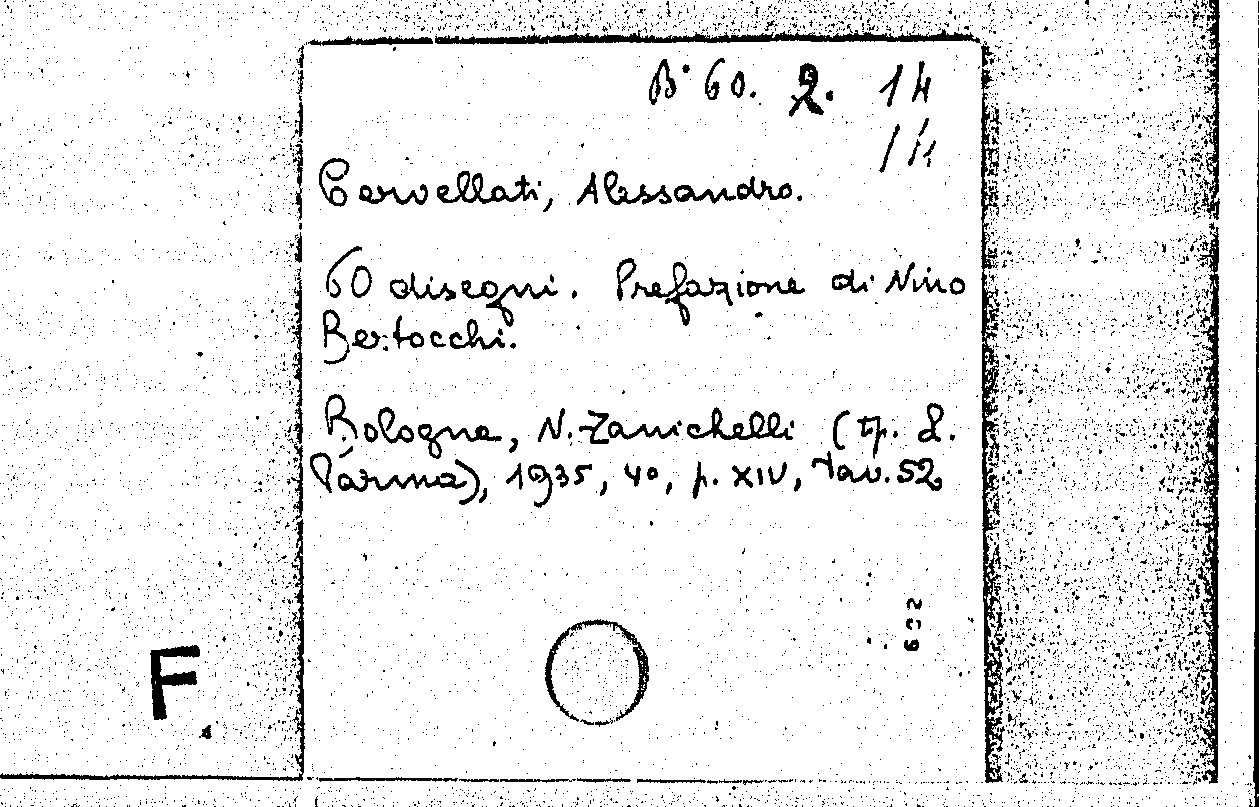 B° 60. 2. 14
14
Cervellati, Alessandro.
60 disegni. Prefazione di Nino
Bertocchi.
Bologna, N. Zanichelli (tip. L.
Parma), 1935, 4°, p. XIV, tav. 52
F